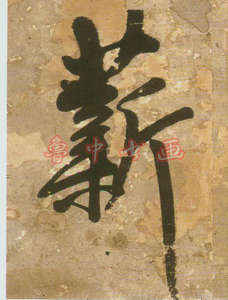 薪
鲁中书画